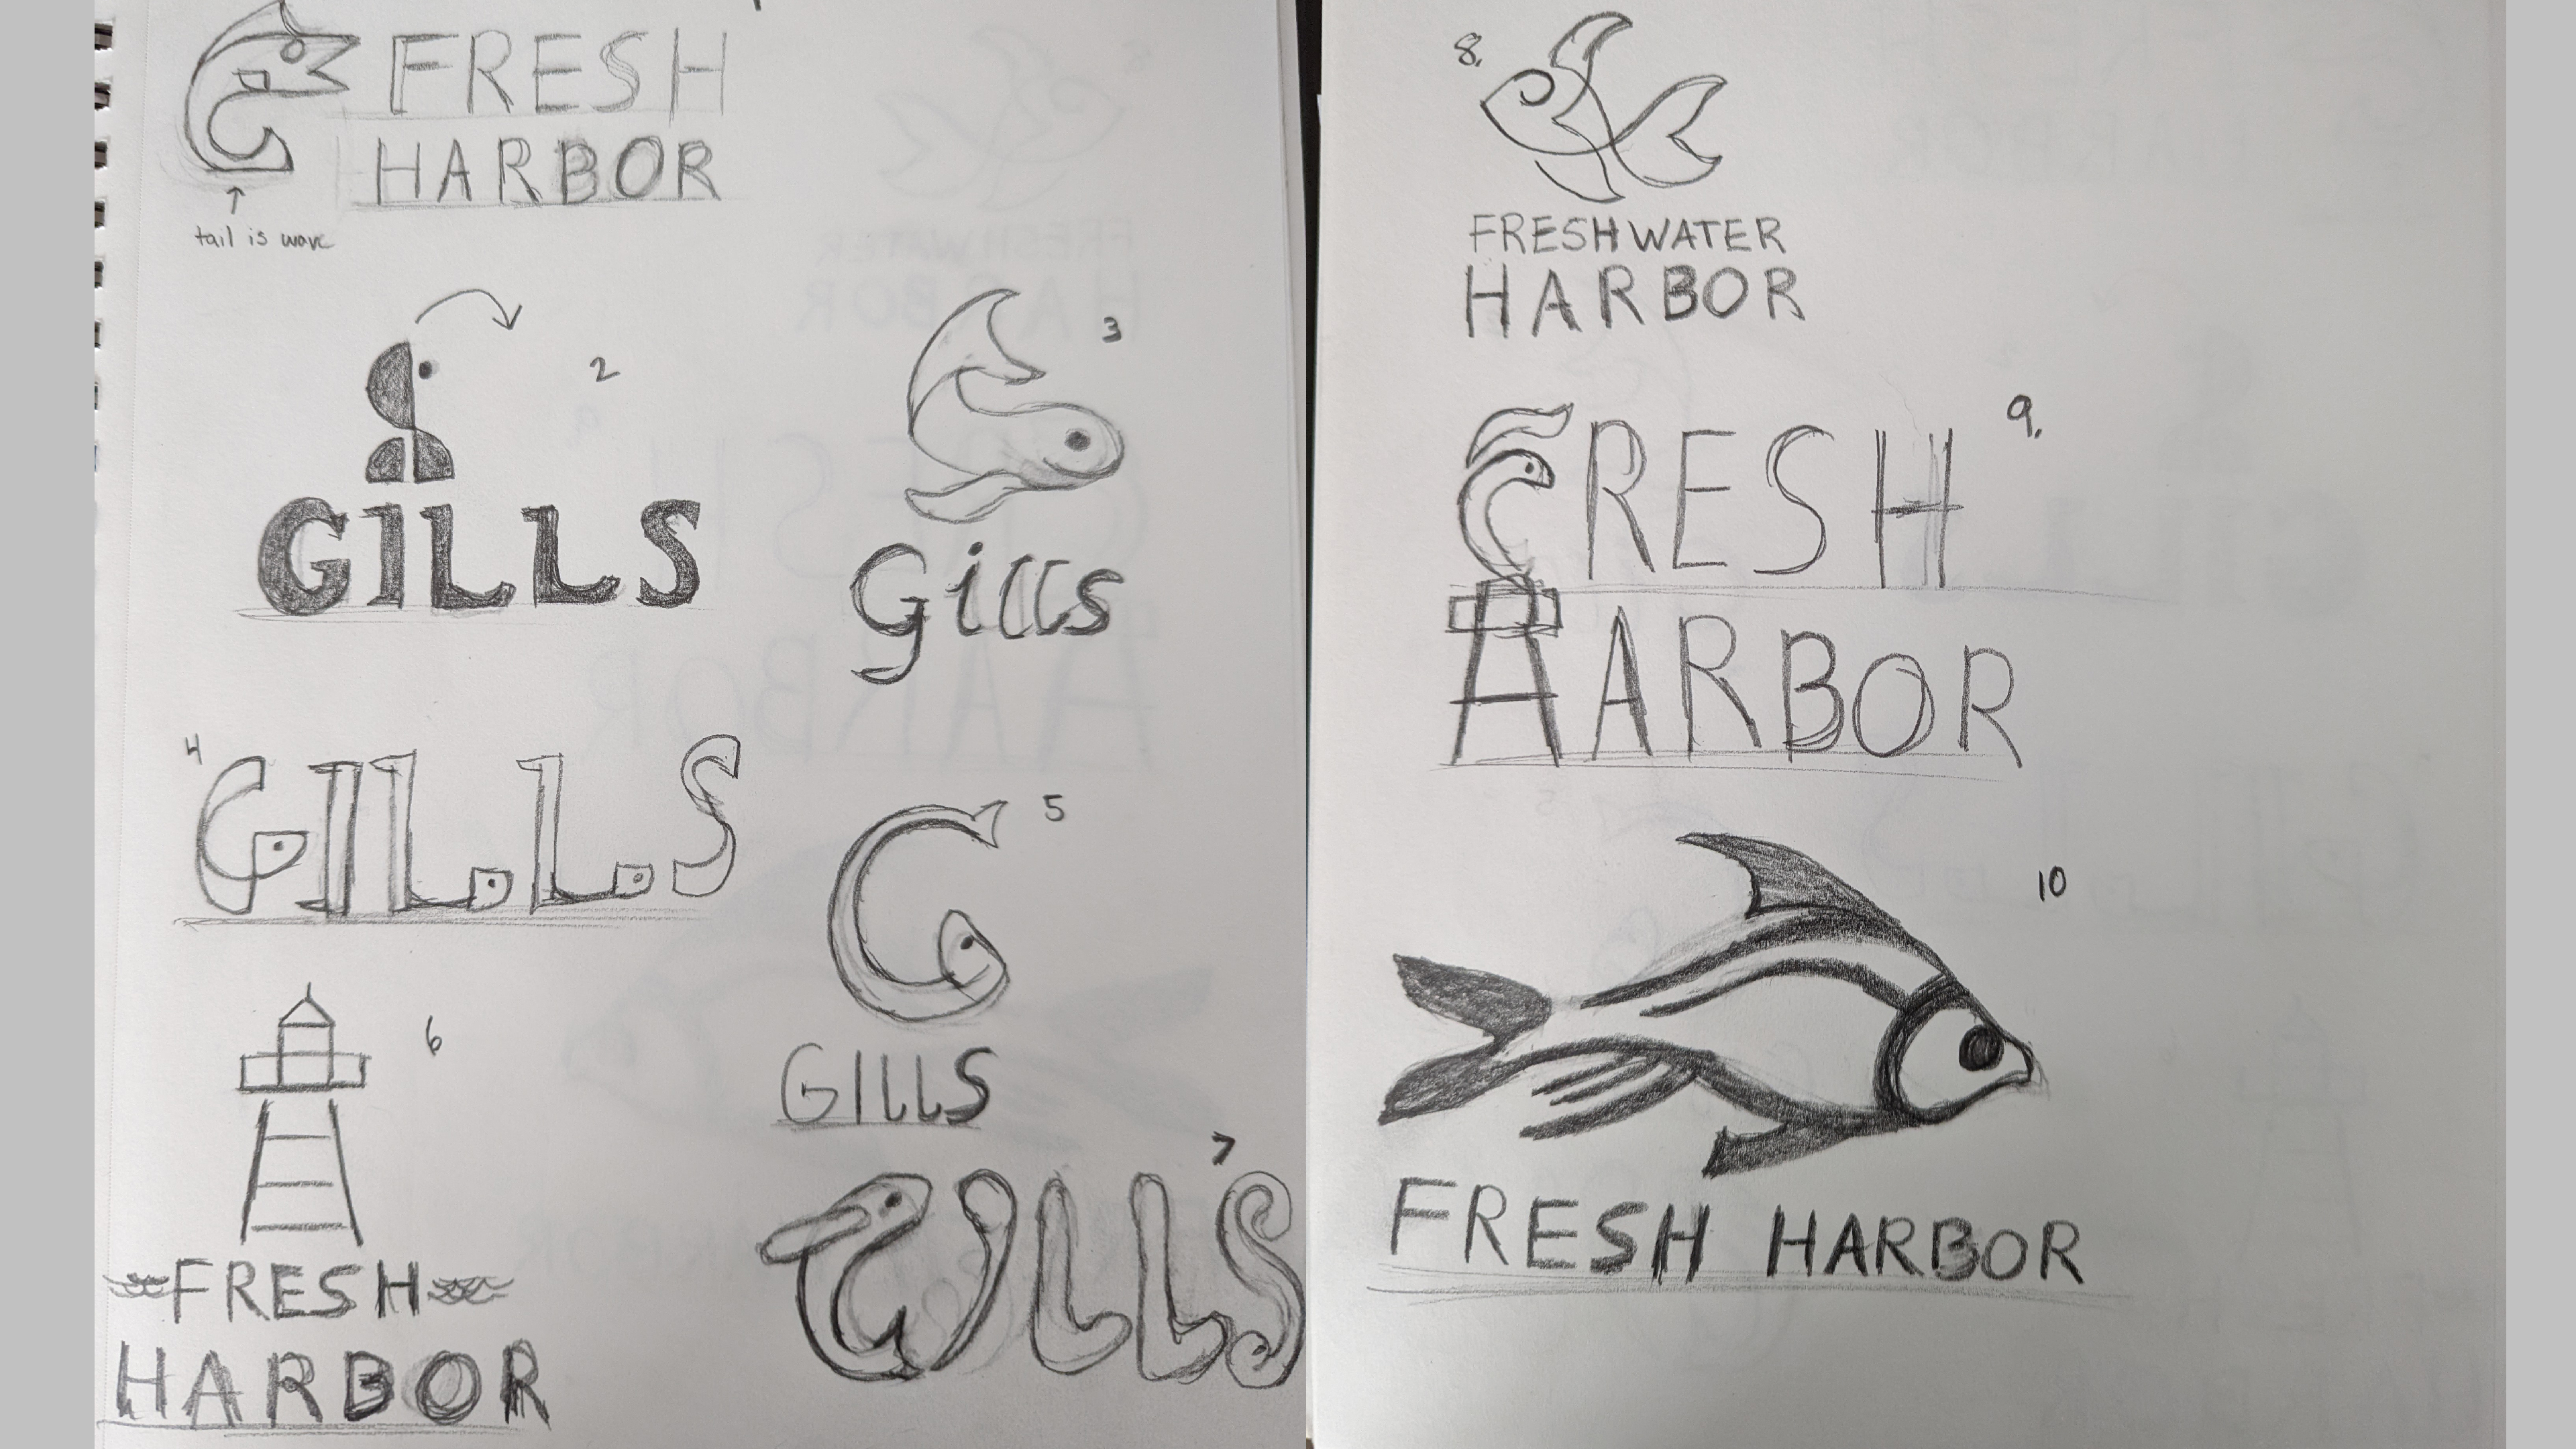 FRESH
HARBOR
tail is wave
2
GILLS
3
Gills
4
GILLS
5
GILLS
6
FRESH
HARBOR
7
GILL'S
8.
FRESHWATER
HARBOR
9.
FRESH
HARBOR
10
FRESH HARBOR